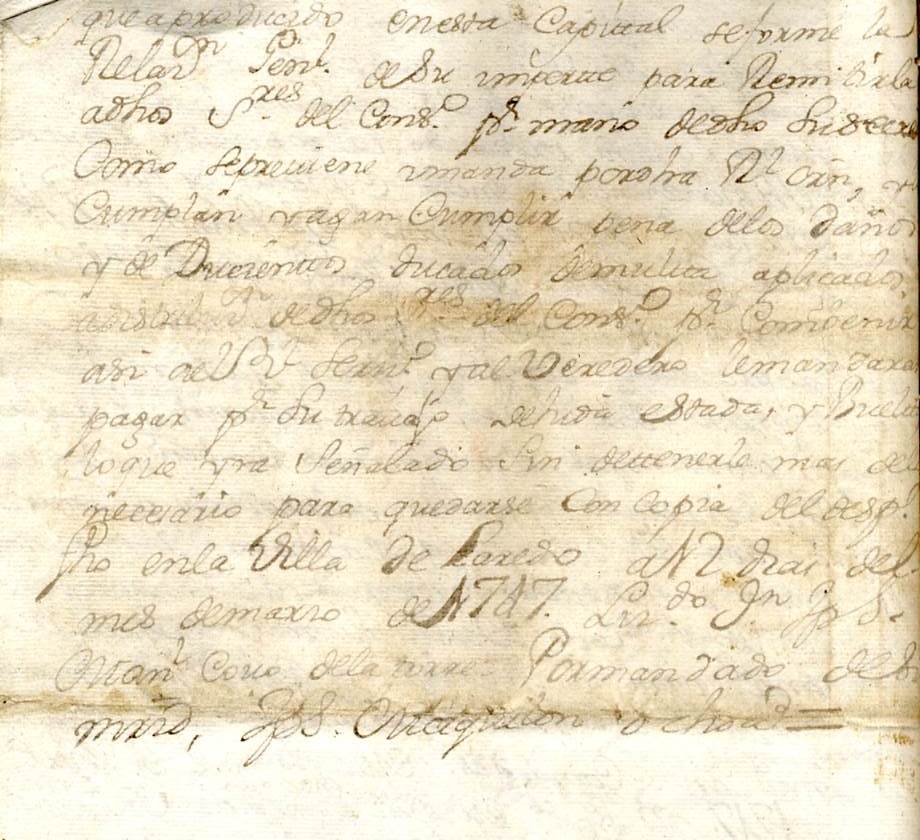 que a producido en esta Capital se forme la
Relazn Genl. de su importe para Remitirla
a dhos Sres del Conso. pr. mano de dho
Como se previene y manda por dha Rl orn, y
Cumplan y agan Cumplir pena de los daños
y de Ducientos ducados de multa aplicados
de dhos Sres del Conso. pr. Combenir
asi al Rl Servo. y al Veredero le mandaran
pagar pr su travajo de hida estada, y Buelta
lo que yra Señalado Sin dettenerle mas del
necesario para quedarse Con copia del desp.
fho en la Villa de Laredo a 12 dias del
mes de marzo de 1747. Lizdo. Dn. Jph.
Manl Covo de la torre Por mandado de S
mrd, Jph.